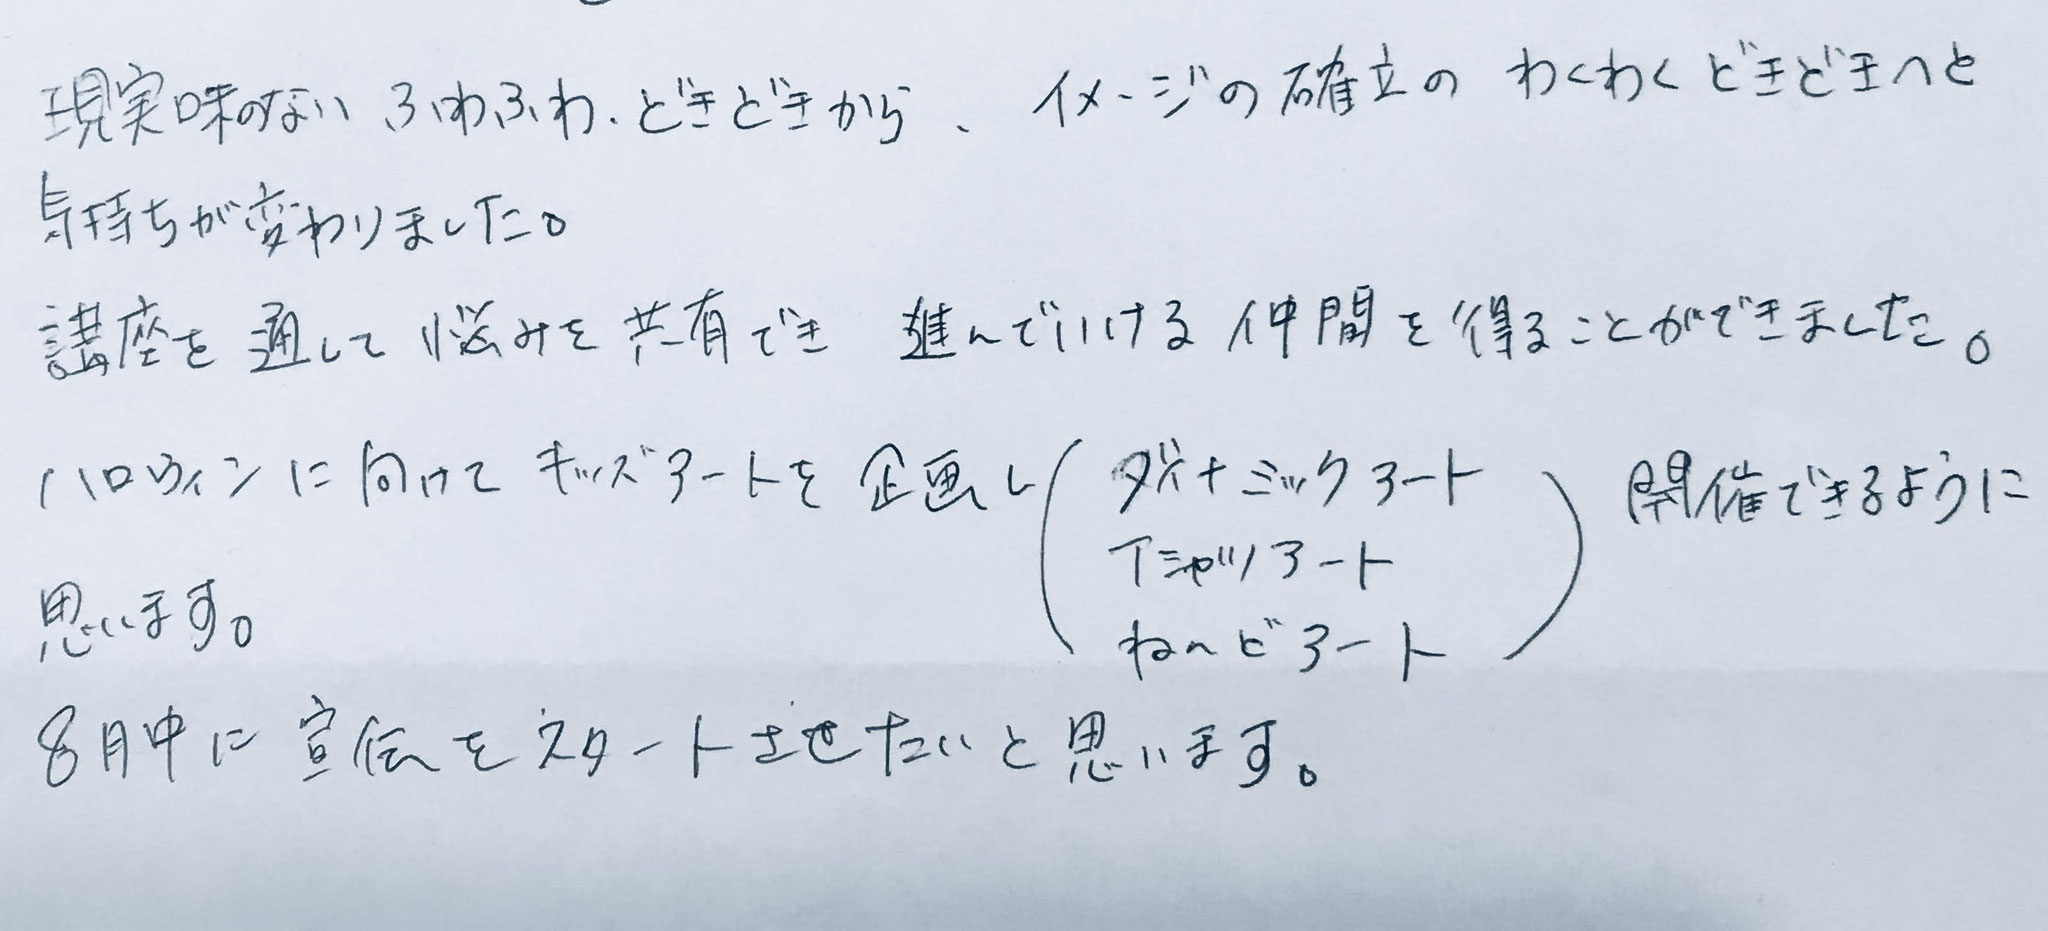 現実味のない ふわふわ、どきどきから、イメージの確立の わくわく どきどきへと
気持ちが変わりました。
講座を通して悩みを共有でき 進んでいける仲間を得ることができました。
ハロウィンに向けてキッズアートを企画し(ダイナミックアート
Tシャツアート
ねんどアート)開催できるように
思います。
8月中に宣伝をスタートさせたいと思います。